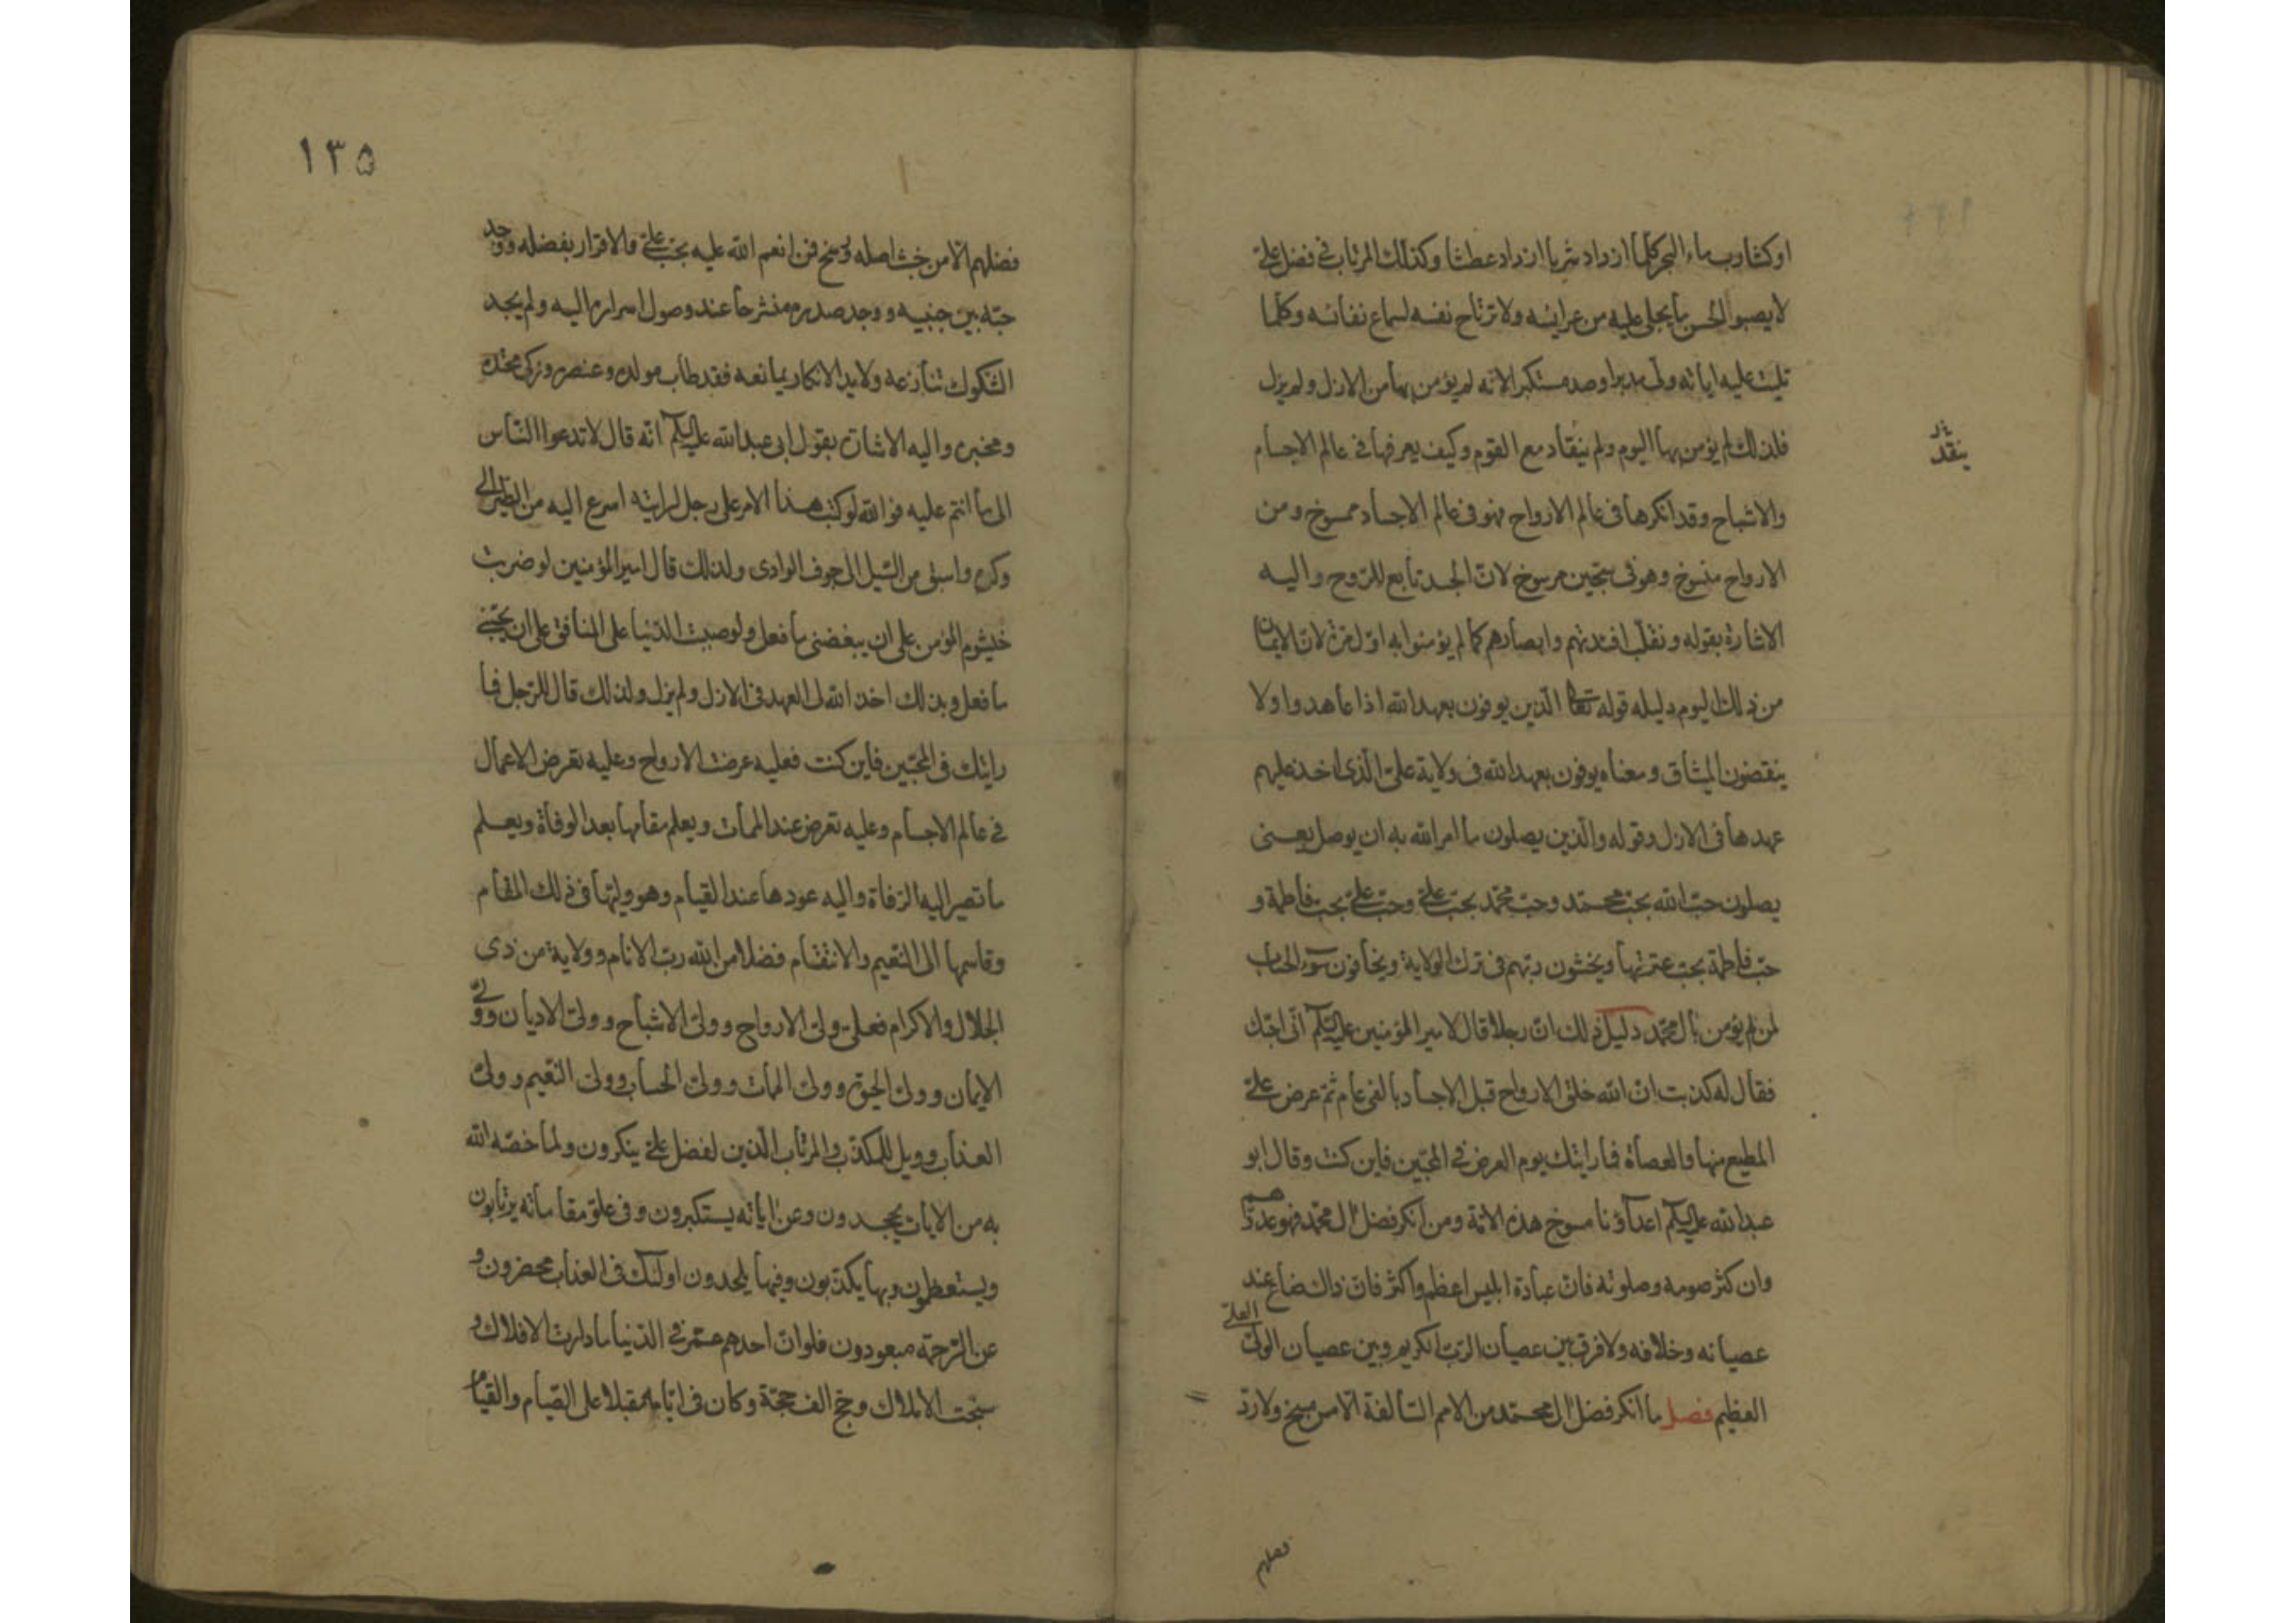 اوكشارب ماء البحر كلما ازداد شربا ازداد عطشا وكذلك المرتاب فى فضل على
لايصبو الحسن ما يجلى عليه من عرائسه ولا ترتاح نفسه لسماع نفائسه وكلما
تليت عليه اياته ولى مدبرا وصد مستكبرا لانه لم يؤمن بها من الازل ولم يزل
فلذلك لم يؤمن بها اليوم ولم ينقاد مع القوم وكيف يعرفها فى عالم الاجسام
ينقد
والاشباح وقد انكرها فى عالم الارواح فهو فى عالم الاجساد ممسوخ ومن
الارواح منسوخ وهو فى سجين مرسوخ لان الجسد تابع للروح واليه
الاشارة بقوله ونقلب افئدتهم وابصارهم كما لم يؤمنوا به اول مرة لان الايمان
من ذلك اليوم دليله قوله تعالى الذين يوفون بعهد الله اذا عاهدوا ولا
ينقضون الميثاق ومعناه يوفون بعهد الله فى ولاية على الذى اخذ عليهم
عهدها فى الازل وقوله والذين يصلون ما امر الله به ان يوصل يعنى
يصلون حب الله بحب محمد وحب محمد بحب على وحب على بحب فاطمة و
حب فاطمة بحب عترتها ويخشون ربهم فى ترك الولاية ويخافون سوء الحساب
لمن لم يؤمن بال محمد دليل ذلك ان رجلا قال لامير المؤمنين عليه السلام انى احبك
فقال له كذبت ان الله خلق الارواح قبل الاجساد بالفى عام ثم عرض على
المطيع منها والعصاة فما رايتك يوم العرض فى المحبين فاين كنت وقال ابو
عبد الله عليه السلام اعداؤنا مسوخ هذه الامة ومن انكر فضل ال محمد فهو عدوهم
وان كثر صومه وصلوته فان عبادة ابليس اعظم واكثر فان ذاك ضاع عند
عصيانه وخلافه ولا فرق بين عصيان الرب الكريم وبين عصيان الولى العلى
العظيم فصل ما انكر فضل ال محمد من الامم السالفة الا من مسخ ولا رد
فضلهم
١٣۵
فضلهم الا من خبث اصله ومسخ فمن انعم الله عليه بحب على والاقرار بفضله ووجد
حبه بين جنبيه ووجد صدره منشرحا عند وصول اسراره اليه ولم يجد
الشكوك تنازعه ولا يد الانكار يمانعه فقد طاب مولده وعنصره وزكى محتده
ومخبره واليه الاشارة بقول ابى عبد الله عليه السلام انه قال لا تدعوا الناس
الى ما انتم عليه فو الله لو كتب هذا الامر على رجل لرايته اسرع اليه من الطير الى
وكره واسبق من السيل الى جوف الوادى ولذلك قال امير المؤمنين لو ضربت
خيشوم المؤمن على ان يبغضنى ما فعل ولو صببت الدنيا على المنافق على ان يحبنى
ما فعل وبذلك اخذ الله لى العهد فى الازل ولم يزل ولذلك قال للرجل فما
رايتك فى المحبين فاين كنت فعليه عرضت الارواح وعليه تعرض الاعمال
فى عالم الاجسام وعليه تعرض عند الممات ويعلم مقامها بعد الوفاة ويعلم
ما تصير اليه الرفاة واليه عودها عند القيام وهو وليها فى ذلك المقام
وقاسمها الى النعيم والانتقام فضلا من الله رب الانام وولاية من ذى
الجلال والاكرام فعلى ولى الارواح وولى الاشباح وولى الاديان وولى
الايمان وولى الحيوة وولى الممات وولى الحساب وولى النعيم وولى
العذاب وويل للمكذب والمرتاب الذين لفضل على ينكرون ولما خصه الله
به من الايات يجحدون وعن اياته يستكبرون وفى علو مقاماته يرتابون
ويستعظمون وبها يكذبون وفيها يلحدون اولئك فى العذاب محضرون و
عن الرحمة مبعودون فلو ان احدهم عمر فى الدنيا ما دارت الافلاك و
سبحت الاملاك وحج الف حجة وكان فى ايامه مقبلا على الصيام والقيام